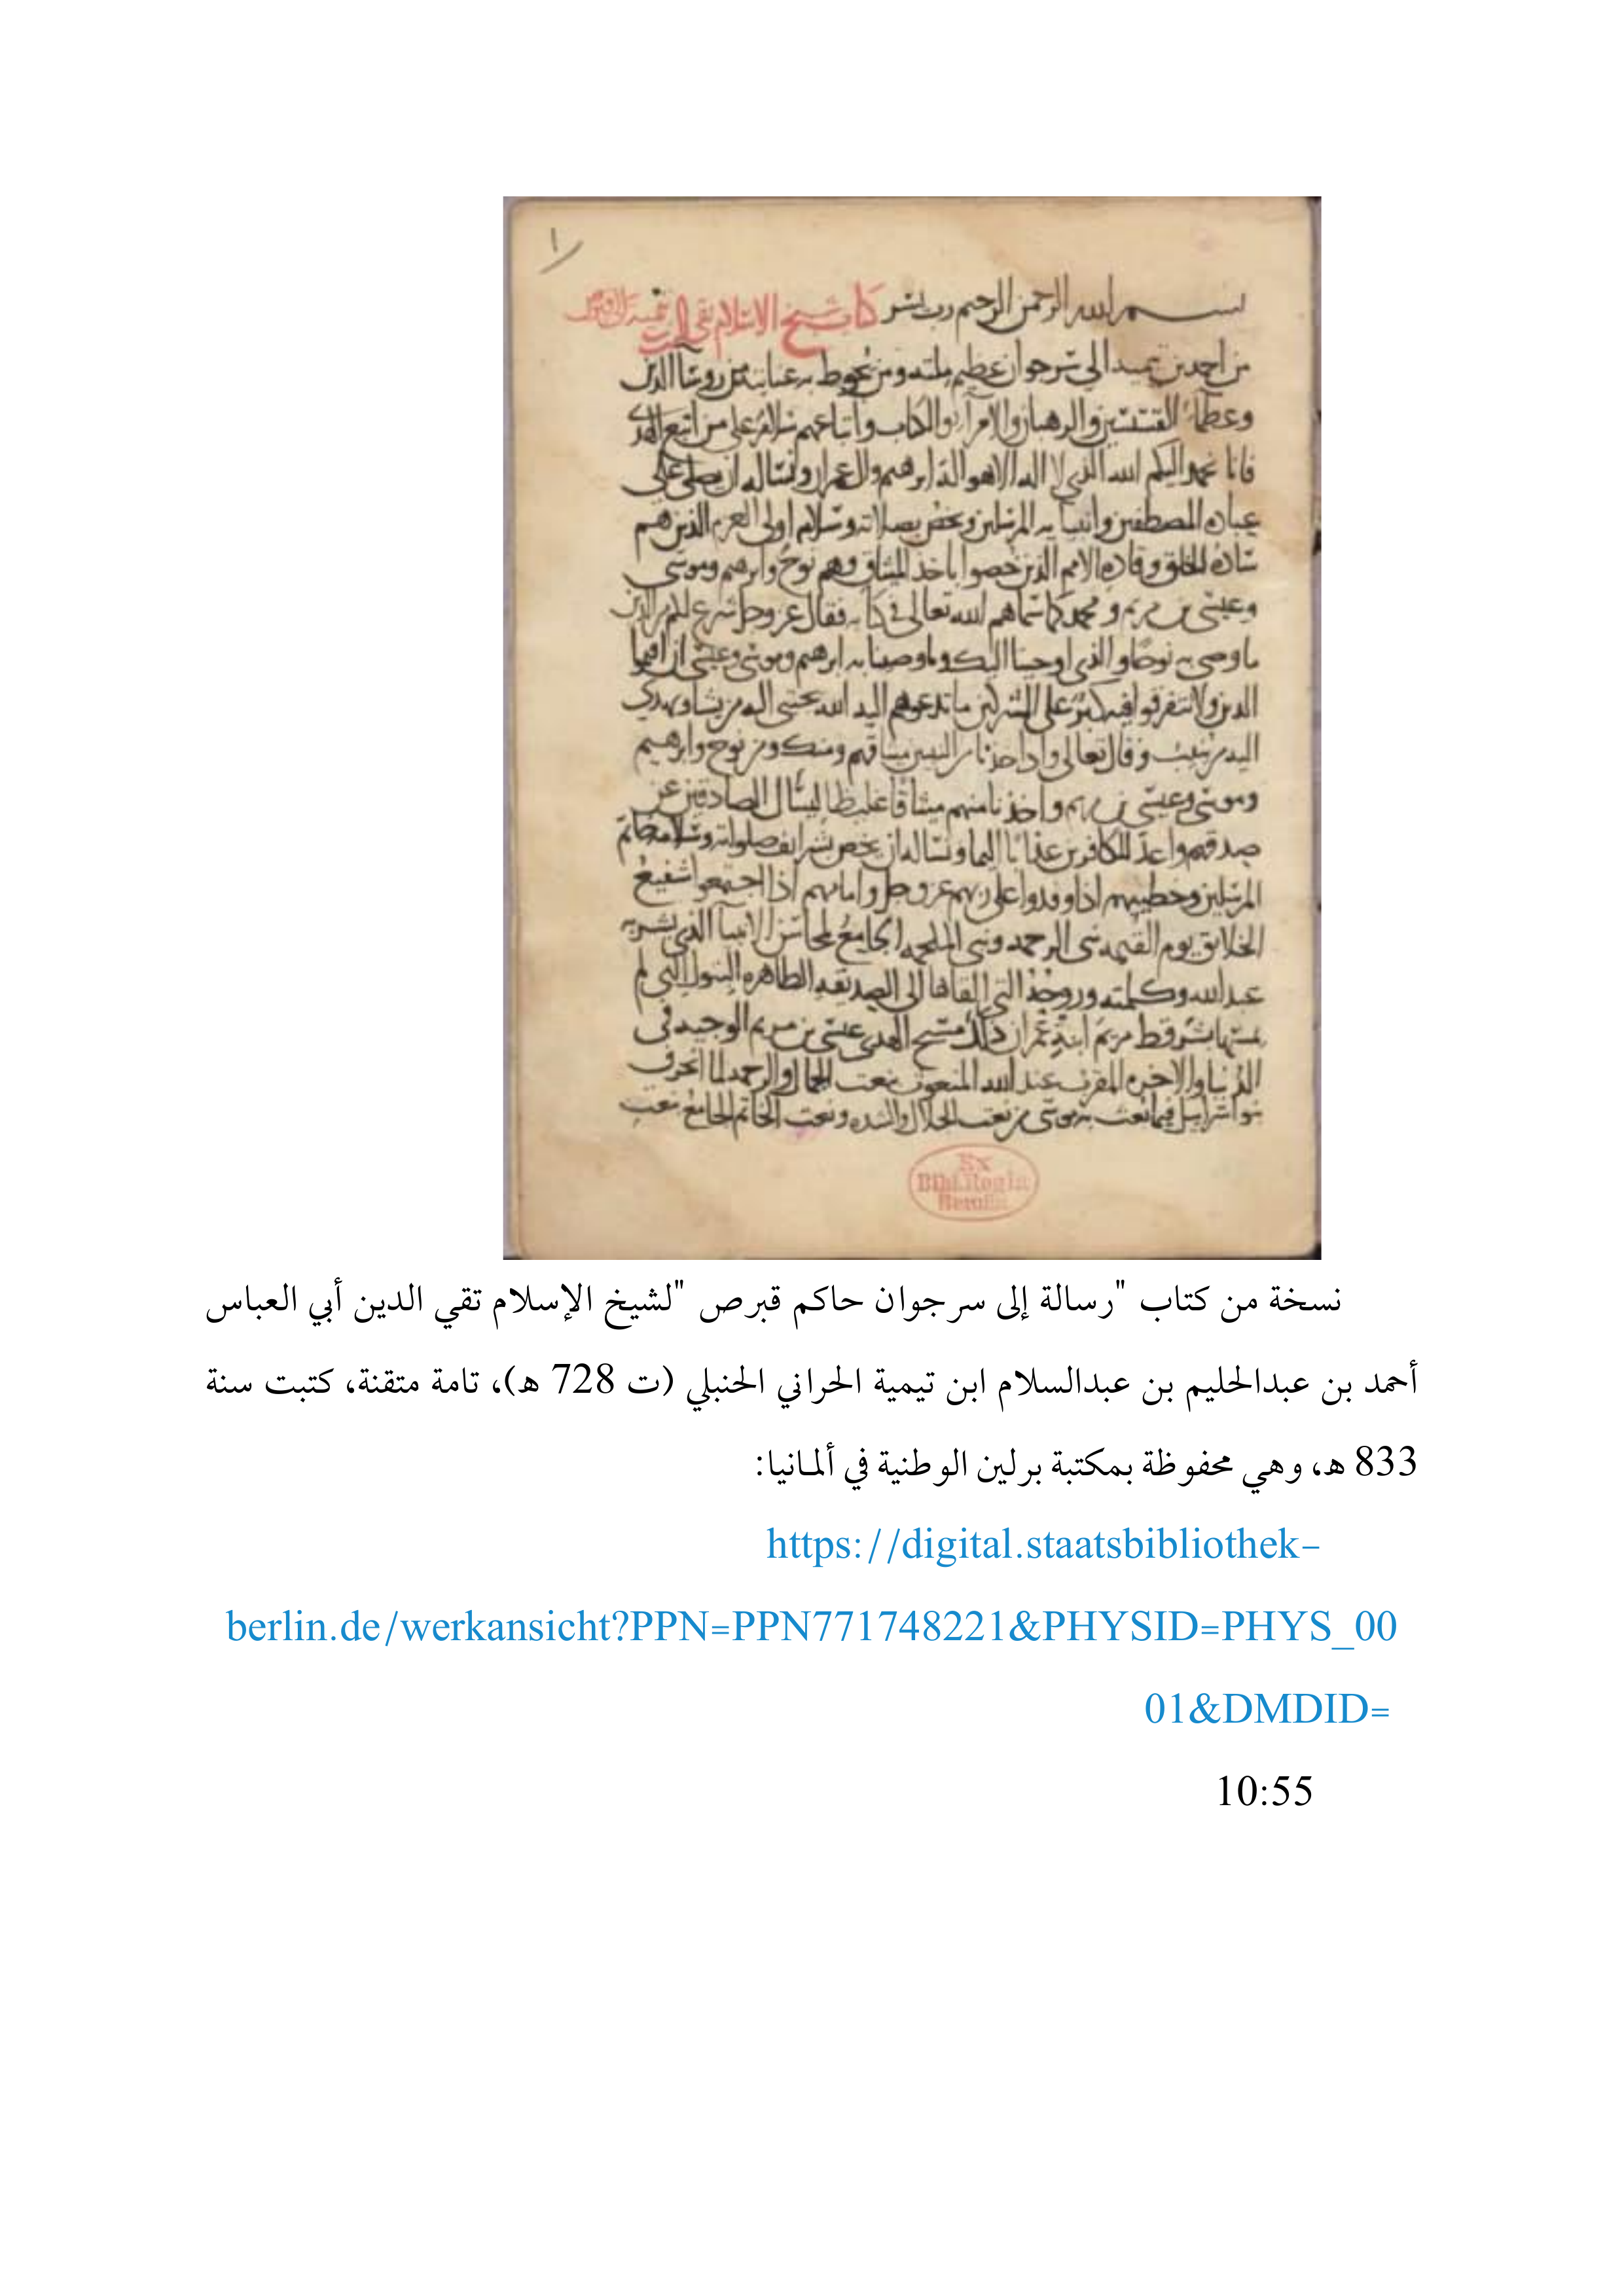 ١
بسم الله الرحمن الرحيم رب يسر كتاب شيخ الاسلام تقي الدين
من احمد بن تيميه الى سرجوان عظيم ملته ومن تحوط به عنايته من روسآ الدين
وعظمآ القسيسين والرهبان والامرآ والكتاب واتباعهم سلام على من اتبع الهدى
فانا نحمد اليكم الله الذي لا اله الا هو اله ابرهيم وال عمران ونساله ان يصلي على
عباده المصطفين وانبيايه المرسلين ويخص بصلاته وسلامه اولى العزم الذين هم
ساده الخلق وقاده الامم الذين خصوا باخذ الميثاق وهم نوح وابرهيم وموسى
وعيسى بن مريم ومحمد كما سماهم الله تعالى في كتابه فقال عز وجل شرع لكم من الدين
ما وصى به نوحا والذي اوحينا اليك وما وصينا به ابرهيم وموسى وعيسى ان اقيموا
الدين ولا تتفرقوا فيه كبر على المشركين ما تدعوهم اليه الله يجتبي اليه من يشا ويهدي
اليه من ينيب وقال تعالى واذ اخذنا من النبيين ميثاقهم ومنك ومن نوح وابرهيم
وموسى وعيسى بن مريم واخذنا منهم ميثاقا غليظا ليسال الصادقين عن
صدقهم واعد للكافرين عذابا اليما ونساله ان يخص بشرايف صلواته وسلامه خاتم
المرسلين وخطيبهم اذا وفدوا على ربهم عز وجل وامامهم اذا اجتمعوا شفيع
الخلايق يوم القيمه نبي الرحمه ونبي الملحمه الجامع لمحاسن الانبيآ الذي بشر به
عبد الله وكلمته وروحه التي القاها الى الصديقه الطاهره البتول التي لم
يمسها بشر قط مريم ابنة عمران ذلك مسيح الهدى عيسى بن مريم الوجيه في
الدنيا والاخره المقرب عند الله المنعوت بنعت الجمال والرحمه لما انحرف
بنو اسرايل فيما بعث به موسى من نعت الجلال والشده وبعث الخاتم الجامع بنعت
Ex
Bibl. Regia
Berolin.
نسخة من كتاب "رسالة إلى سرجوان حاكم قبرص "لشيخ الإسلام تقي الدين أبي العباس
أحمد بن عبدالحليم بن عبدالسلام ابن تيمية الحراني الحنبلي (ت 728 هـ)، تامة متقنة، كتبت سنة
833 هـ، وهي محفوظة بمكتبة برلين الوطنية في ألمـانيا:
https://digital.staatsbibliothek-
berlin.de/werkansicht?PPN=PPN771748221&PHYSID=PHYS_00
01&DMDID=
10:55